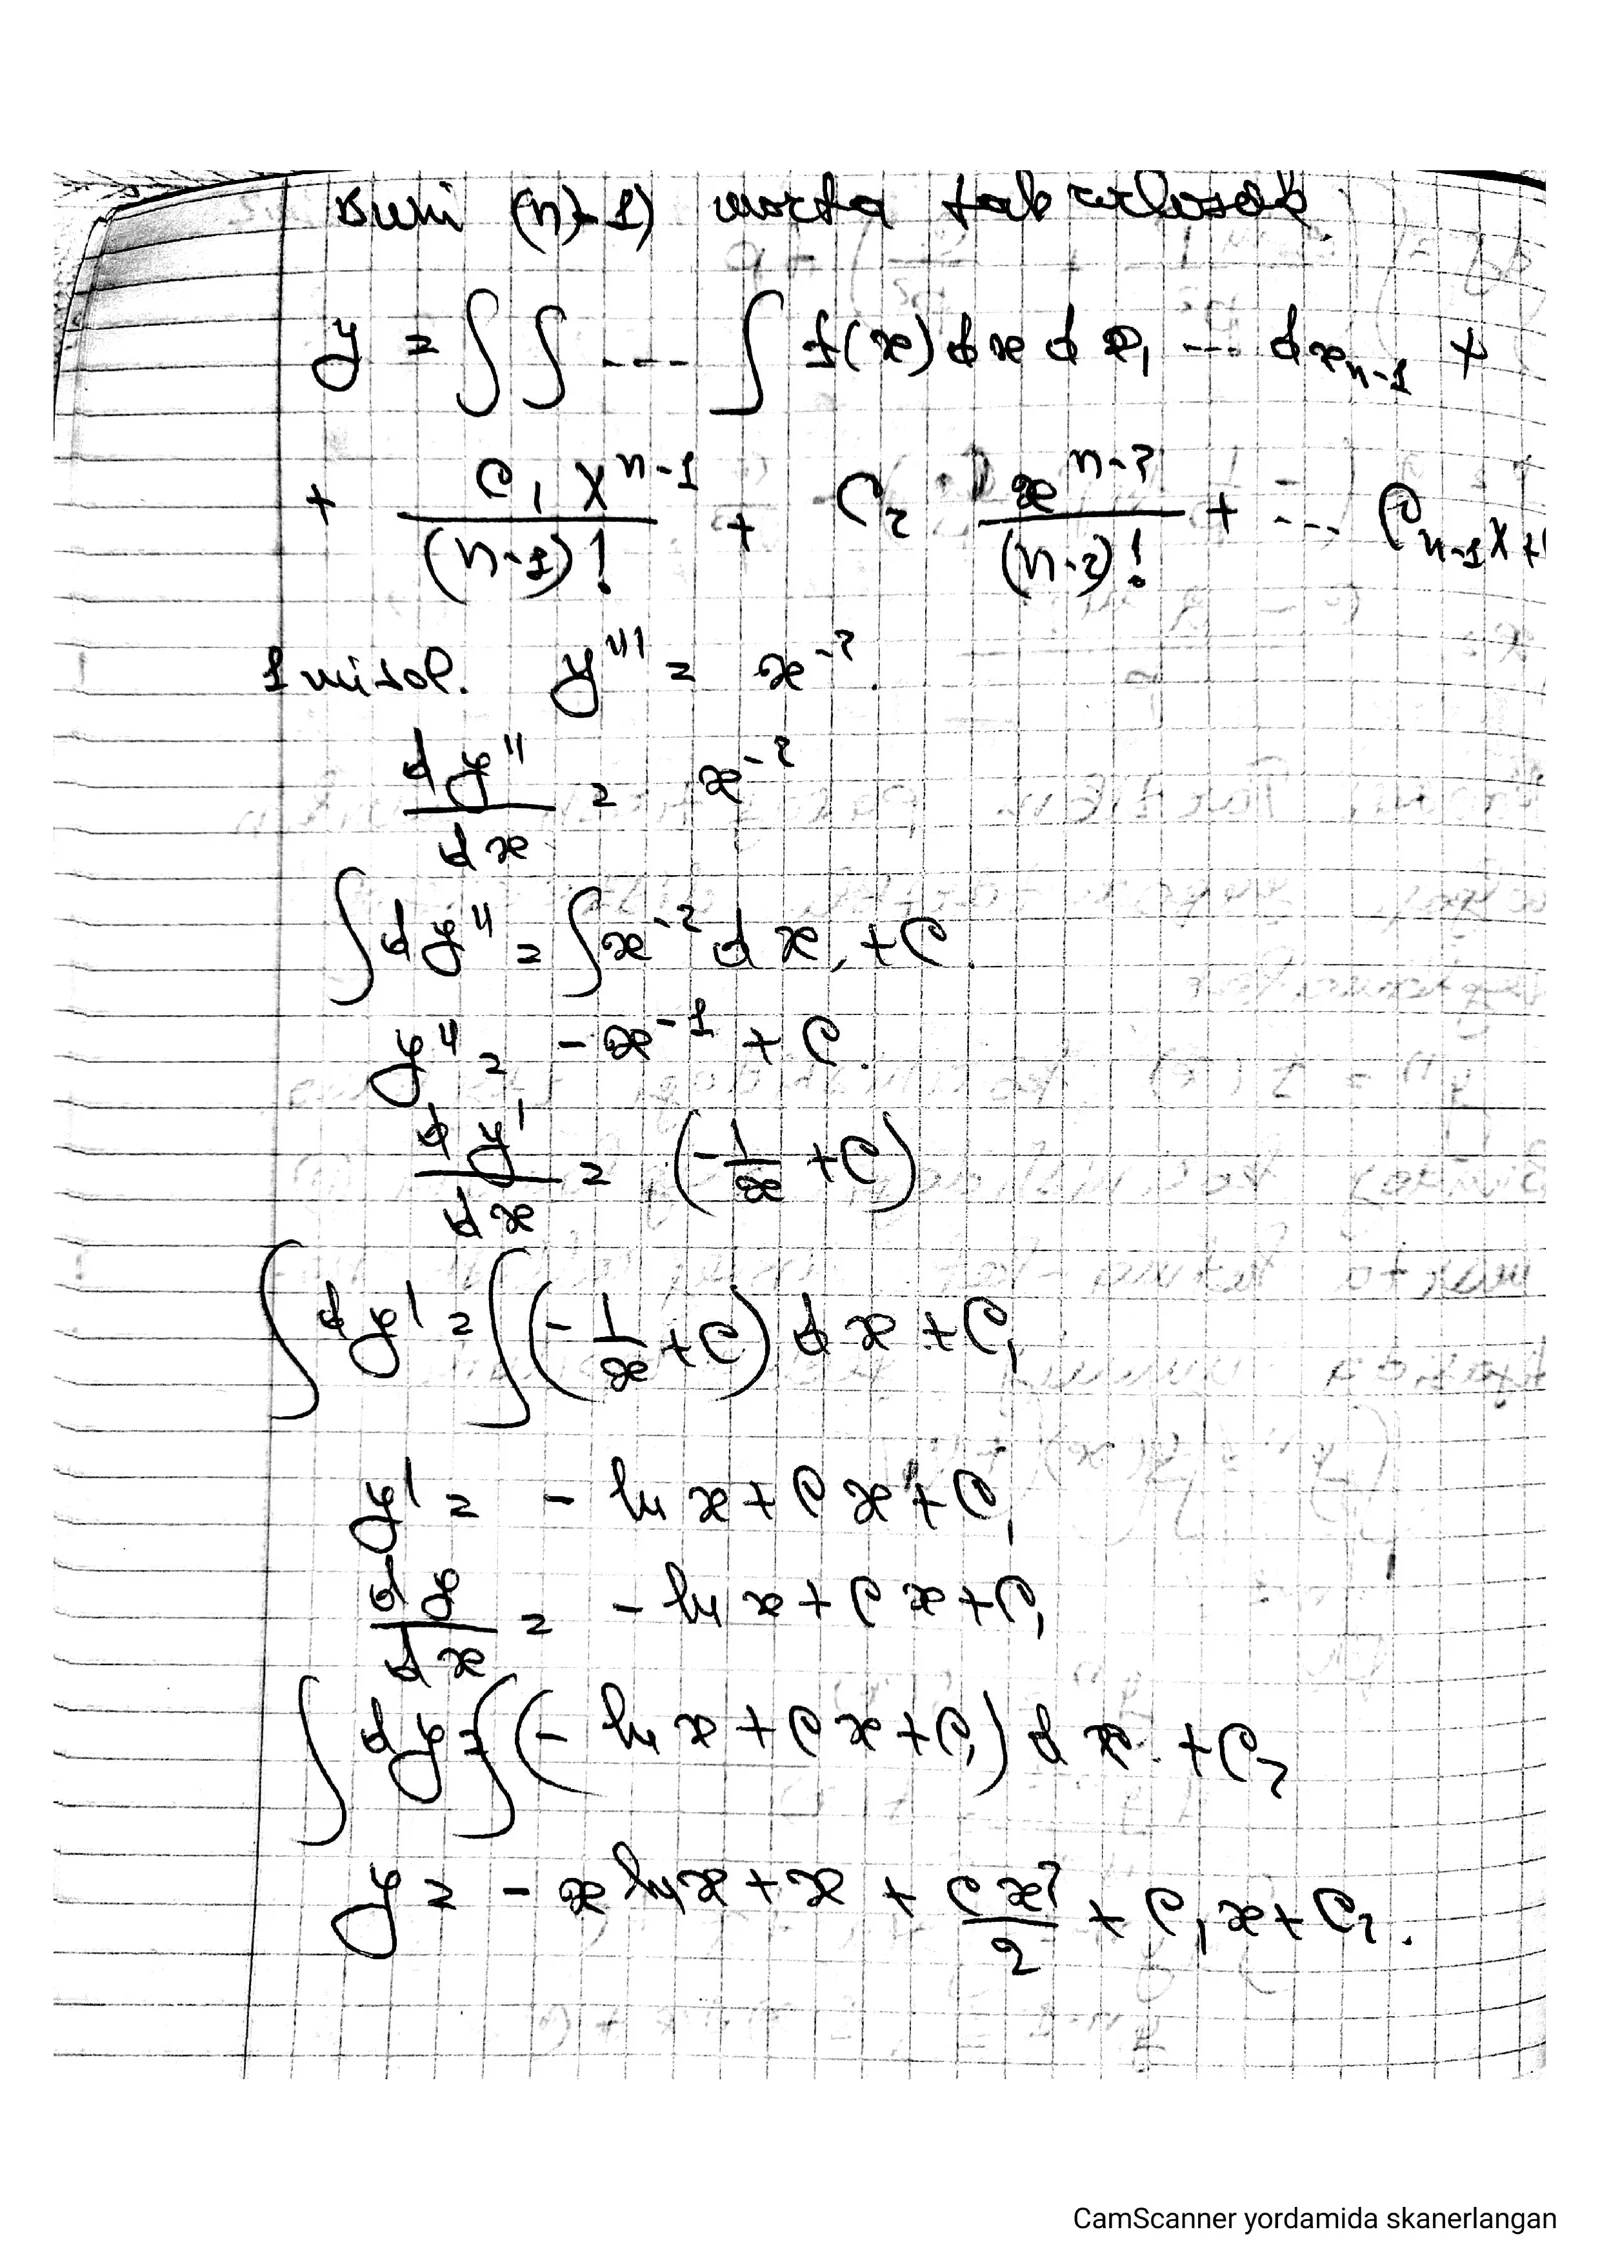 Buni (n-1) marta takrorlasak
y = ∫ ∫ --- ∫ f(x) dx dx₁ --- dxₙ₋₁ +
+ C₁xⁿ⁻¹/(n-1)! + C₂ xⁿ⁻²/(n-2)! + --- Cₙ₋₁x +
1 misol. y''' = x⁻².
dy''/dx = x⁻²
∫ dy'' = ∫ x⁻² dx + C.
y'' = - x⁻¹ + C.
dy'/dx = (-1/x + C)
∫ dy' = ∫ (-1/x + C) dx + C₁
y' = - ln x + C x + C₁
dy/dx = - ln x + C x + C₁
∫ dy = ∫ (- ln x + C x + C₁) dx + C₂
y = - x ln x + x + C x²/2 + C₁x + C₂.
CamScanner yordamida skanerlangan